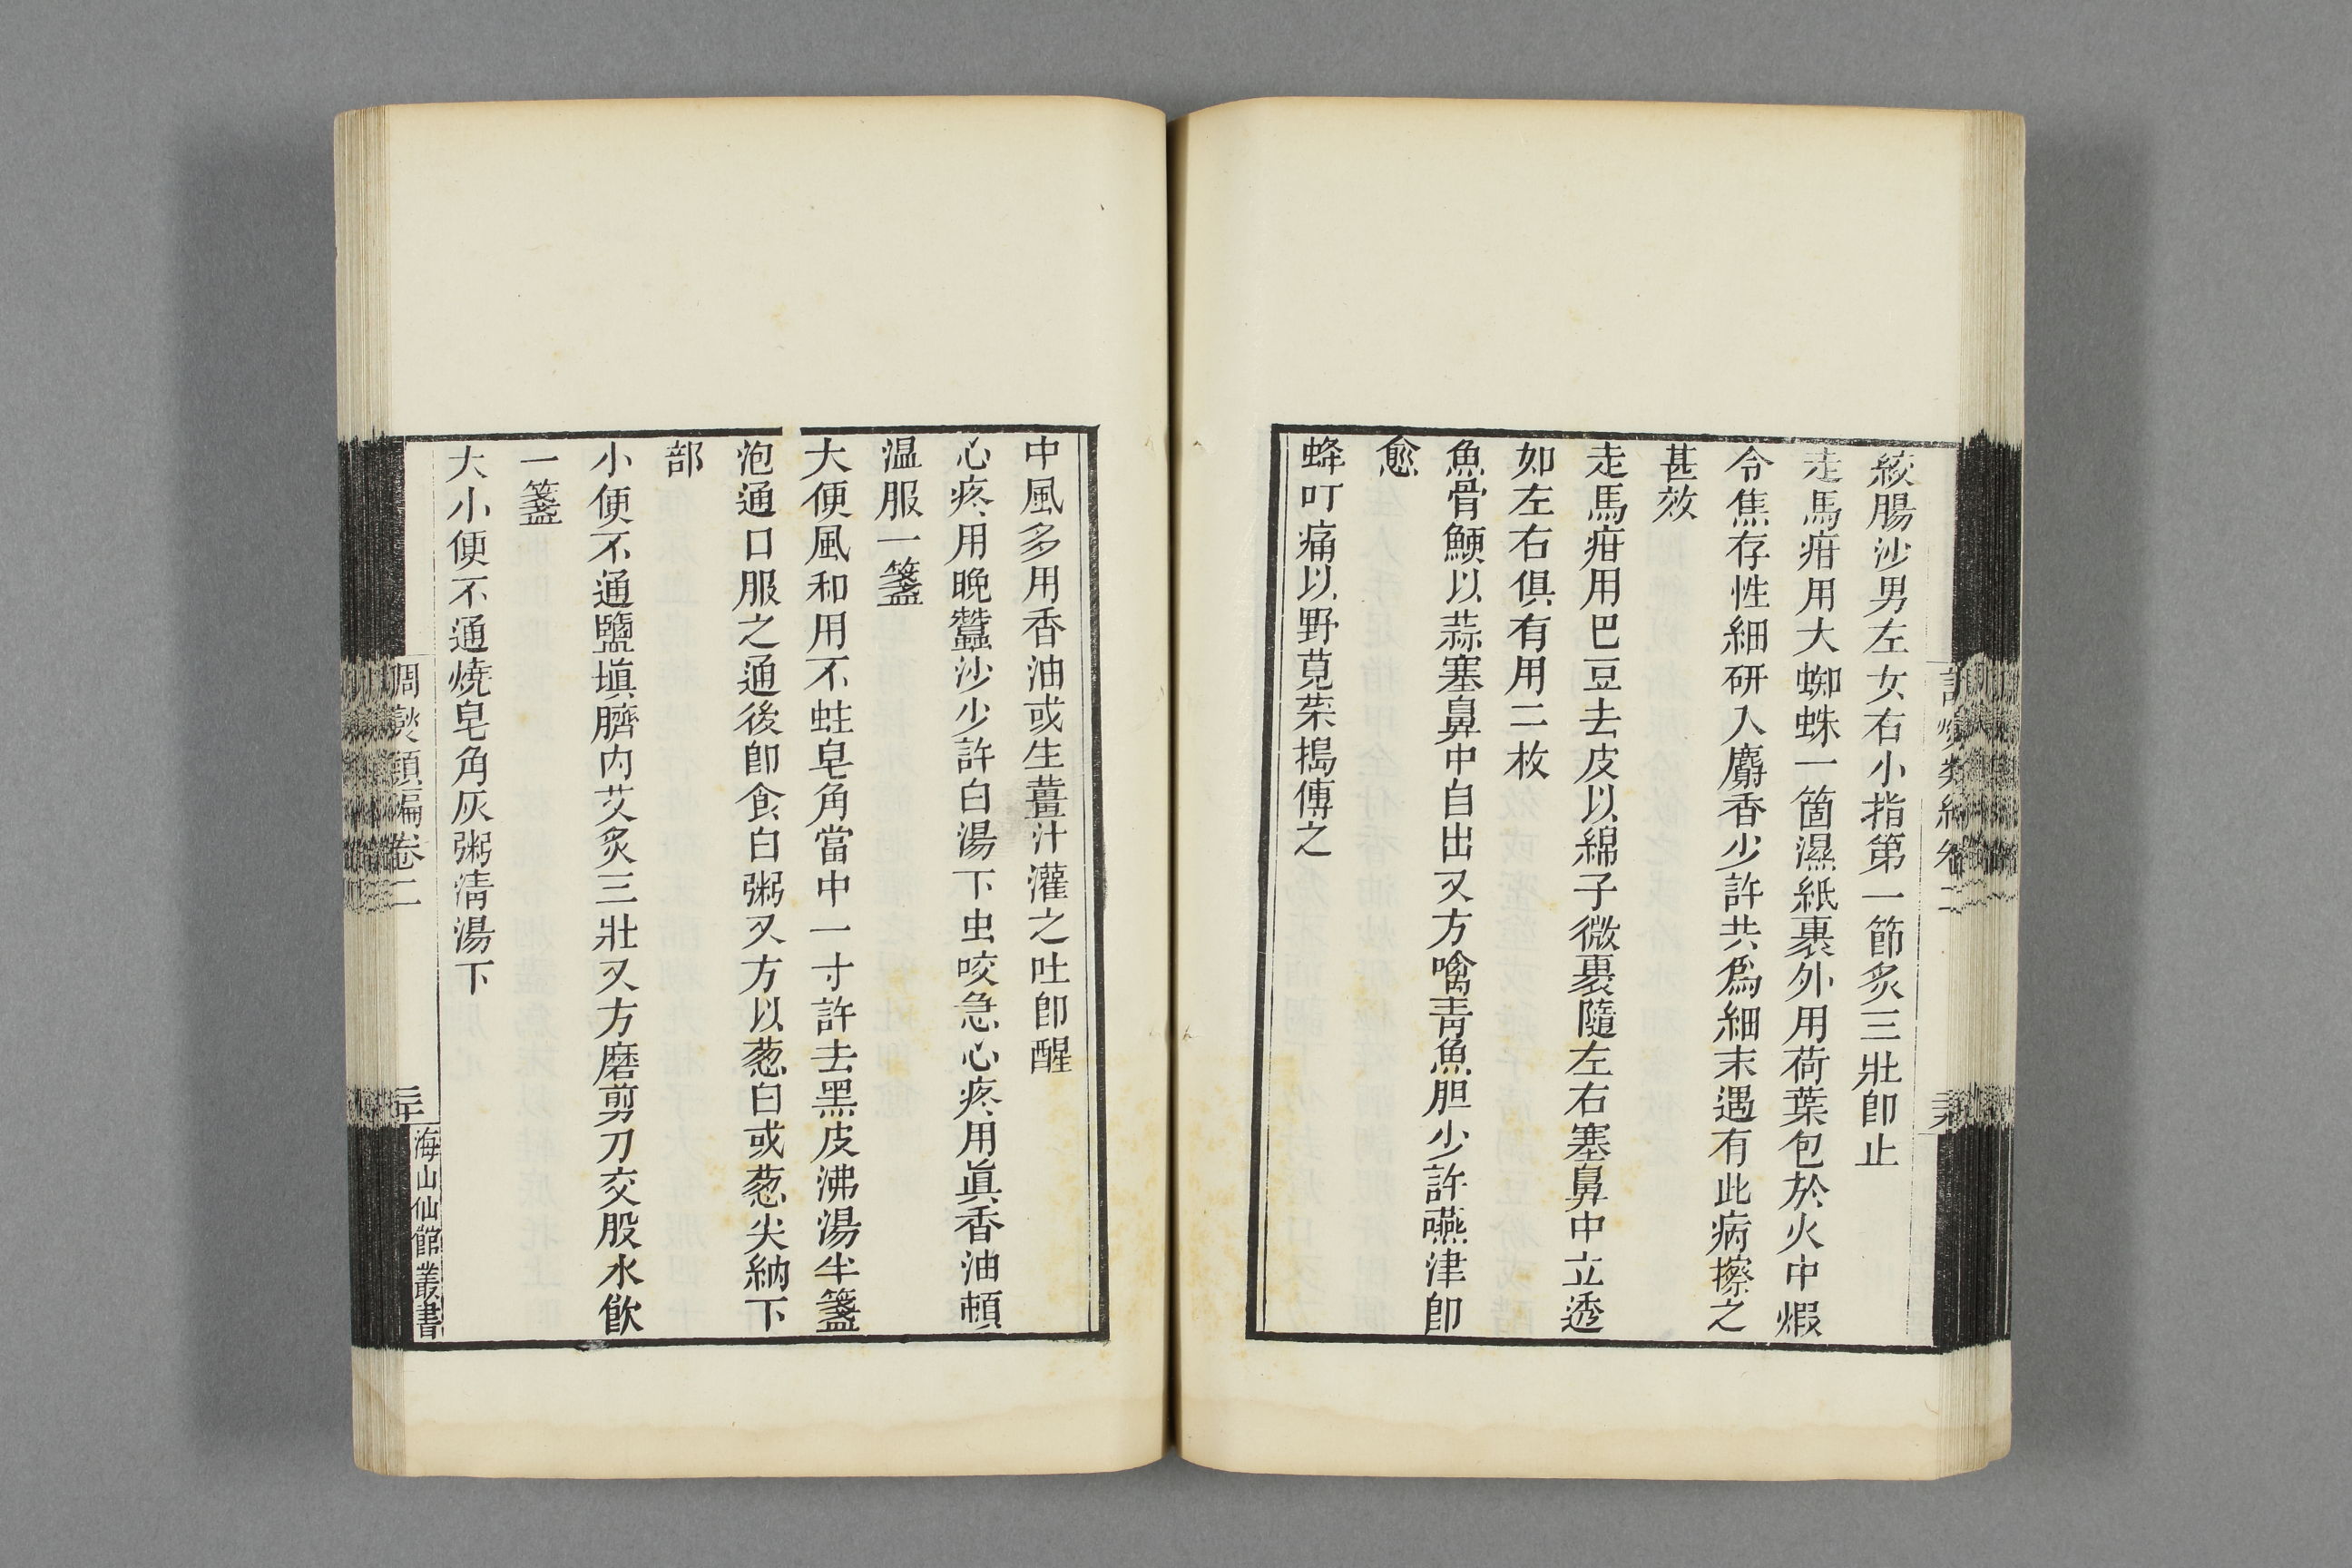 絞腸沙男左女右小指第一節炙三壯卽止
走馬疳用大蜘蛛一箇濕紙裹外用荷葉包於火中煆
令焦存性細研入麝香少許共爲細末遇有此病擦之
甚效
走馬疳用巴豆去皮以綿子微裹隨左右塞鼻中立透
如左右俱有用二枚
魚骨鯁以蒜塞鼻中自出又方噙青魚胆少許嚥津卽
愈
蜂叮痛以野莧菜搗傅之
中風多用香油或生薑汁灌之吐卽醒
心疼用晚蠶沙少許白湯下虫咬急心疼用眞香油頓
温服一盞
大便風和用不蛀皂角當中一寸許去黑皮沸湯半盞
泡通口服之通後卽食白粥又方以葱白或葱尖納下
部
小便不通鹽塡臍内艾炙三壯又方磨剪刀交股水飲
一盞
大小便不通燒皂角灰粥清湯下
調燮類編卷二
三十
海山仙館叢書